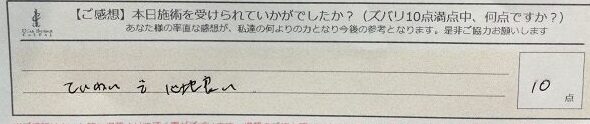 【ご感想】本日施術を受けられていかがでしたか？（ズバリ10点満点中、何点ですか？）
あなた様の率直な感想が、私達の何よりの力となり今後の参考となります。是非ご協力お願いします
ていねい で 心地良い
10
点